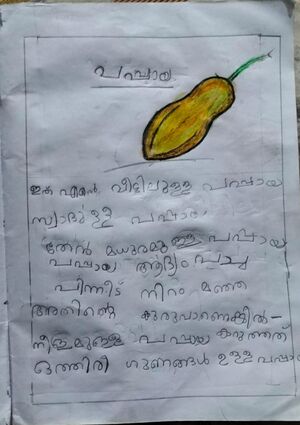 പപ്പായ
ഇത് എന്റെ വീട്ടിലുള്ള പപ്പായ
സ്വാദുള്ള പപ്പായ
തേൻ മധുരമുള്ള പപ്പായ
പപ്പായ ആദ്യം പച്ച
പിന്നീട് നിറം മഞ്ഞ
അതിന്റെ കുരുവാണെങ്കിൽ-
നീളമുള്ള പപ്പായ കറുത്തത്
ഒത്തിരി ഗുണങ്ങൾ ഉള്ള പപ്പായ